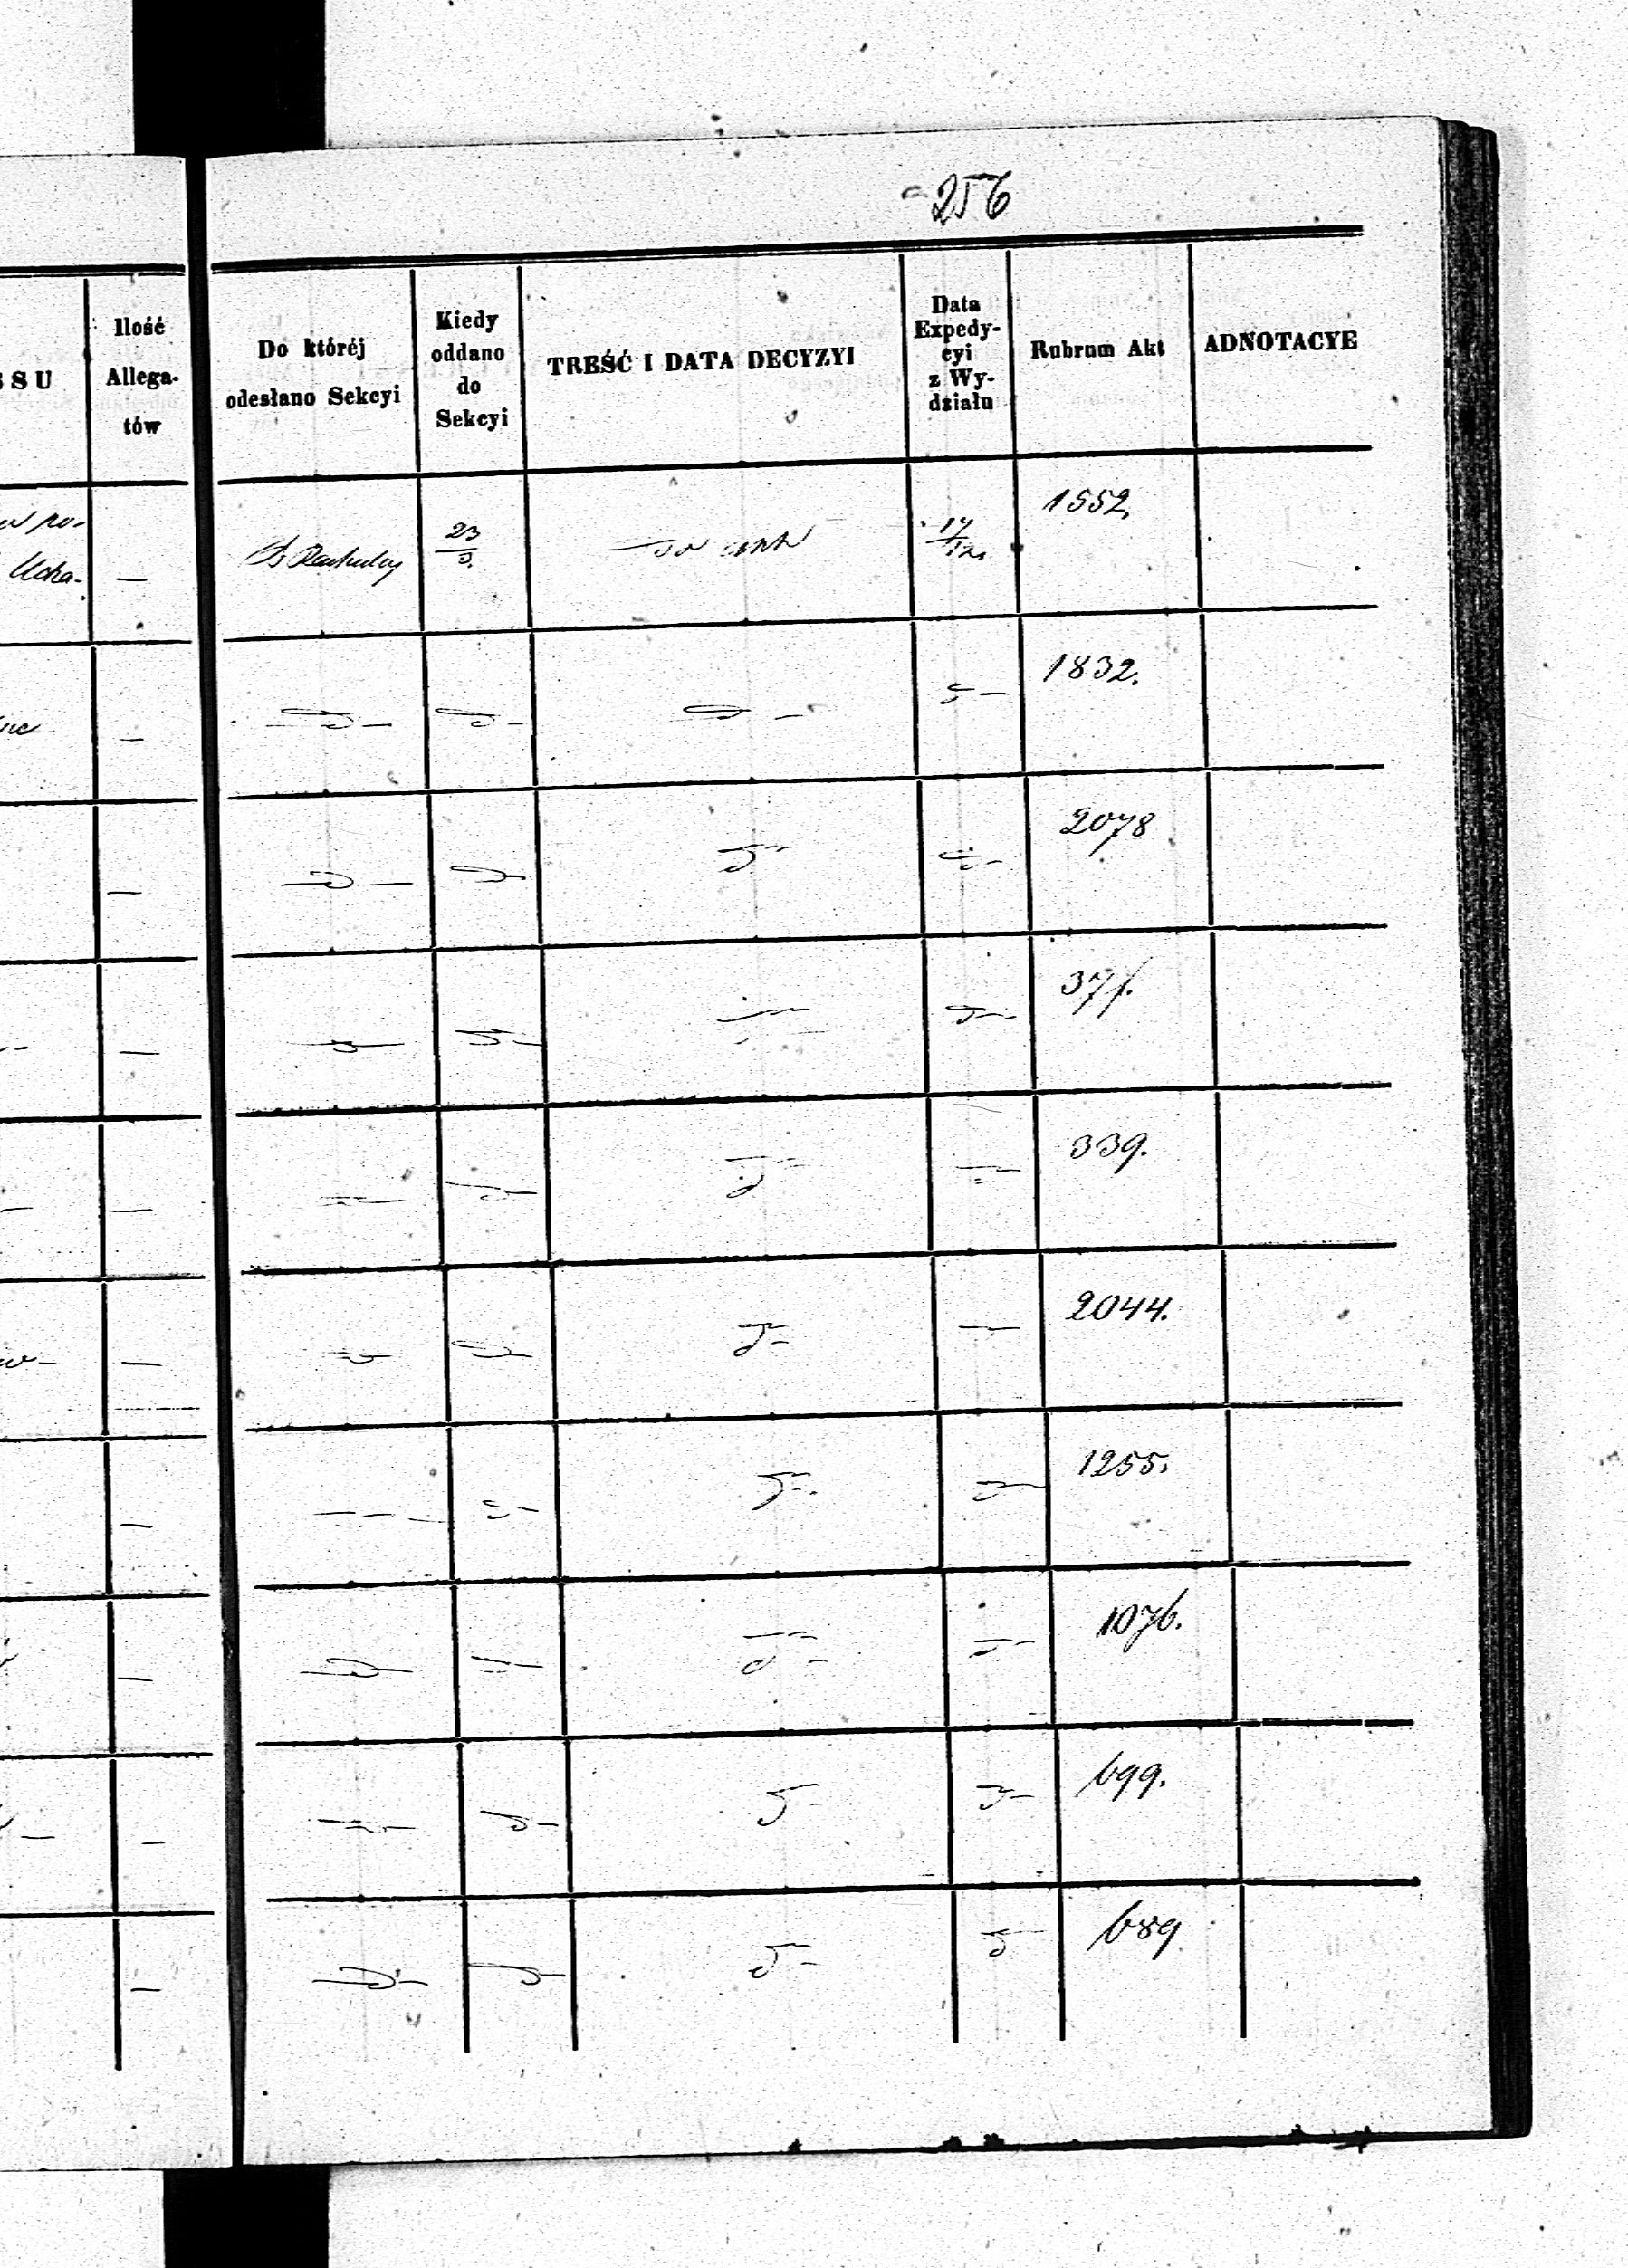 256
SSU
Ilość
Allega-
tów
Do któréj
odesłano Sekcyi
Kiedy
oddano
do
Sekcyi
TREŚĆ I DATA DECYZYI
Data
Expedy-
cyi
z Wy-
działu
Rubrum Akt
ADNOTACYE
po-
Ucha-
—
23
do akt
17/12
1552.
—
1832.
—
2078
—
371.
—
339.
—
2044.
—
1255.
—
1076.
—
699.
—
689